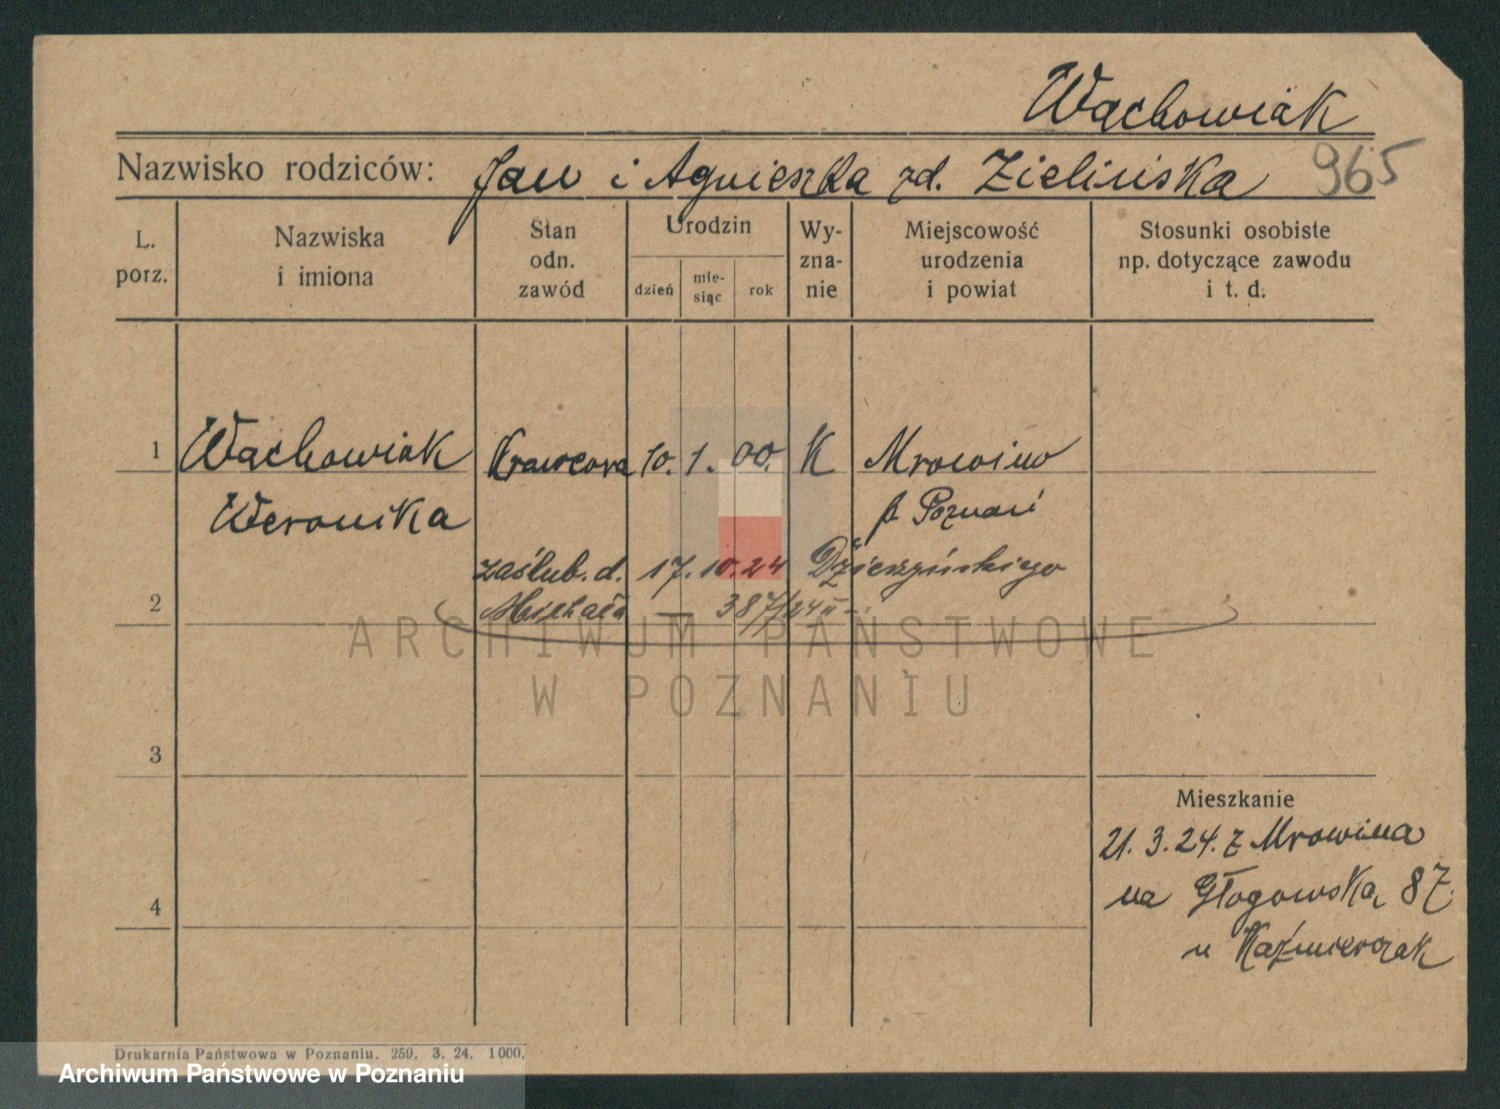 Wachowiak
Nazwisko rodziców: Jan i Agnieszka zd. Zielińska 965
L. porz.
Nazwiska i imiona
Stan odn. zawód
Urodzin
dzień
mie-siąc
rok
Wy-zna-nie
Miejscowość urodzenia i powiat
Stosunki osobiste np. dotyczące zawodu i t. d.
1 Wachowiak Krawcowa 10. 1. 00. K Mrowino
Weronika p. Poznań
zaślub. d. 17. 10. 24 Dzierzyńskiego
2 Michała — 387/24 II
ARCHIWUM PAŃSTWOWE
W POZNANIU
3
Mieszkanie
21. 3. 24. z Mrowina
na Głogowską 87.
4
u Kaźmierczak
Drukarnia Państwowa w Poznaniu. 259. 3. 24. 1000.
Archiwum Państwowe w Poznaniu